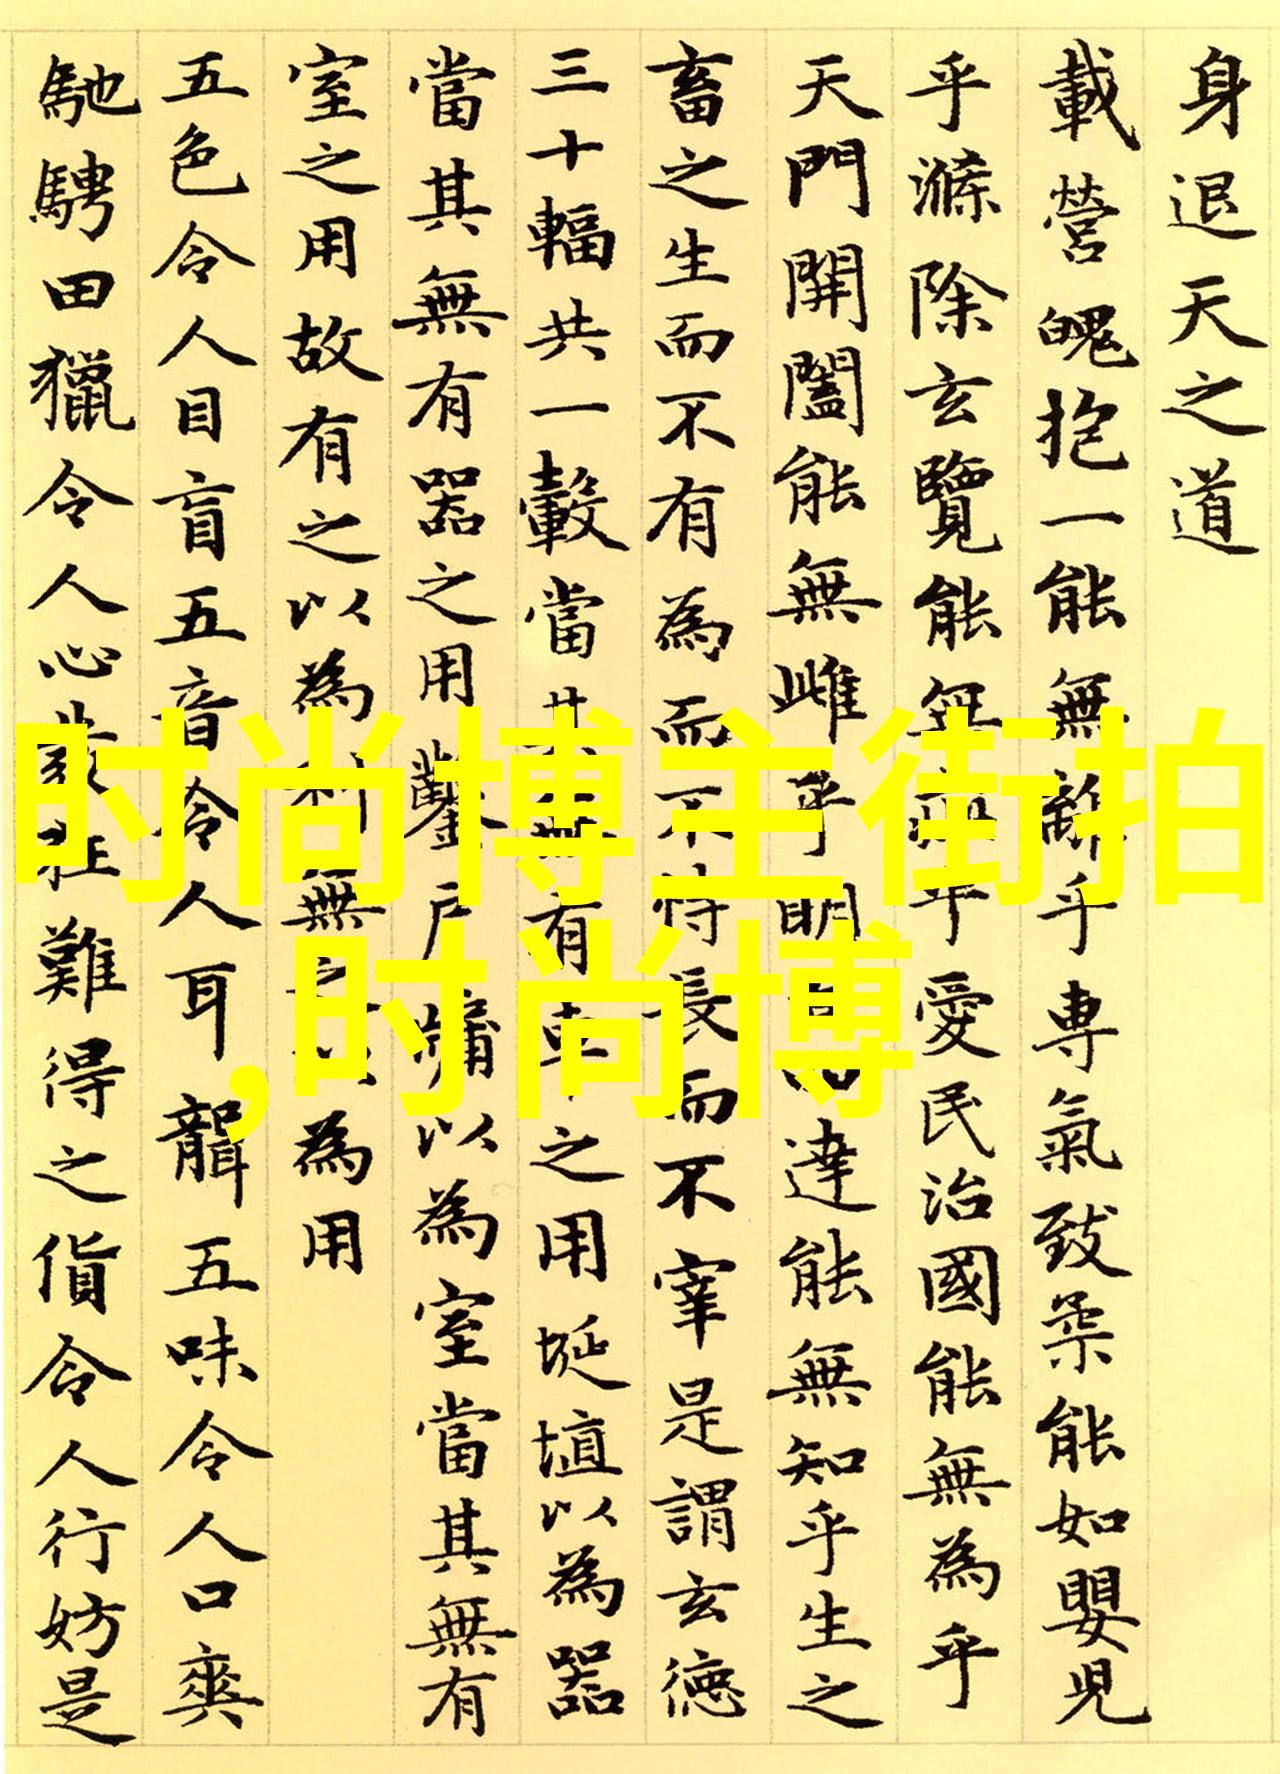 身退天之道
載營魄抱一能無離乎専氣致柔能如嬰児
乎滌除玄覽能無乎愛民治國能無為乎
天門開闔能無雌乎明達能無知乎生之
畜之生而不有為而不恃長而不宰是謂玄德
三十輻共一轂當其無有車之用埏埴以為器
當其無有器之用鑿戶牖以為室當其無有
室之用故有之以為利無之以為用
五色令人目盲五音令人耳聾五味令人口爽
馳騁田獵令人心發狂難得之貨令人行妨是
时尚博主街拍
,时尚博